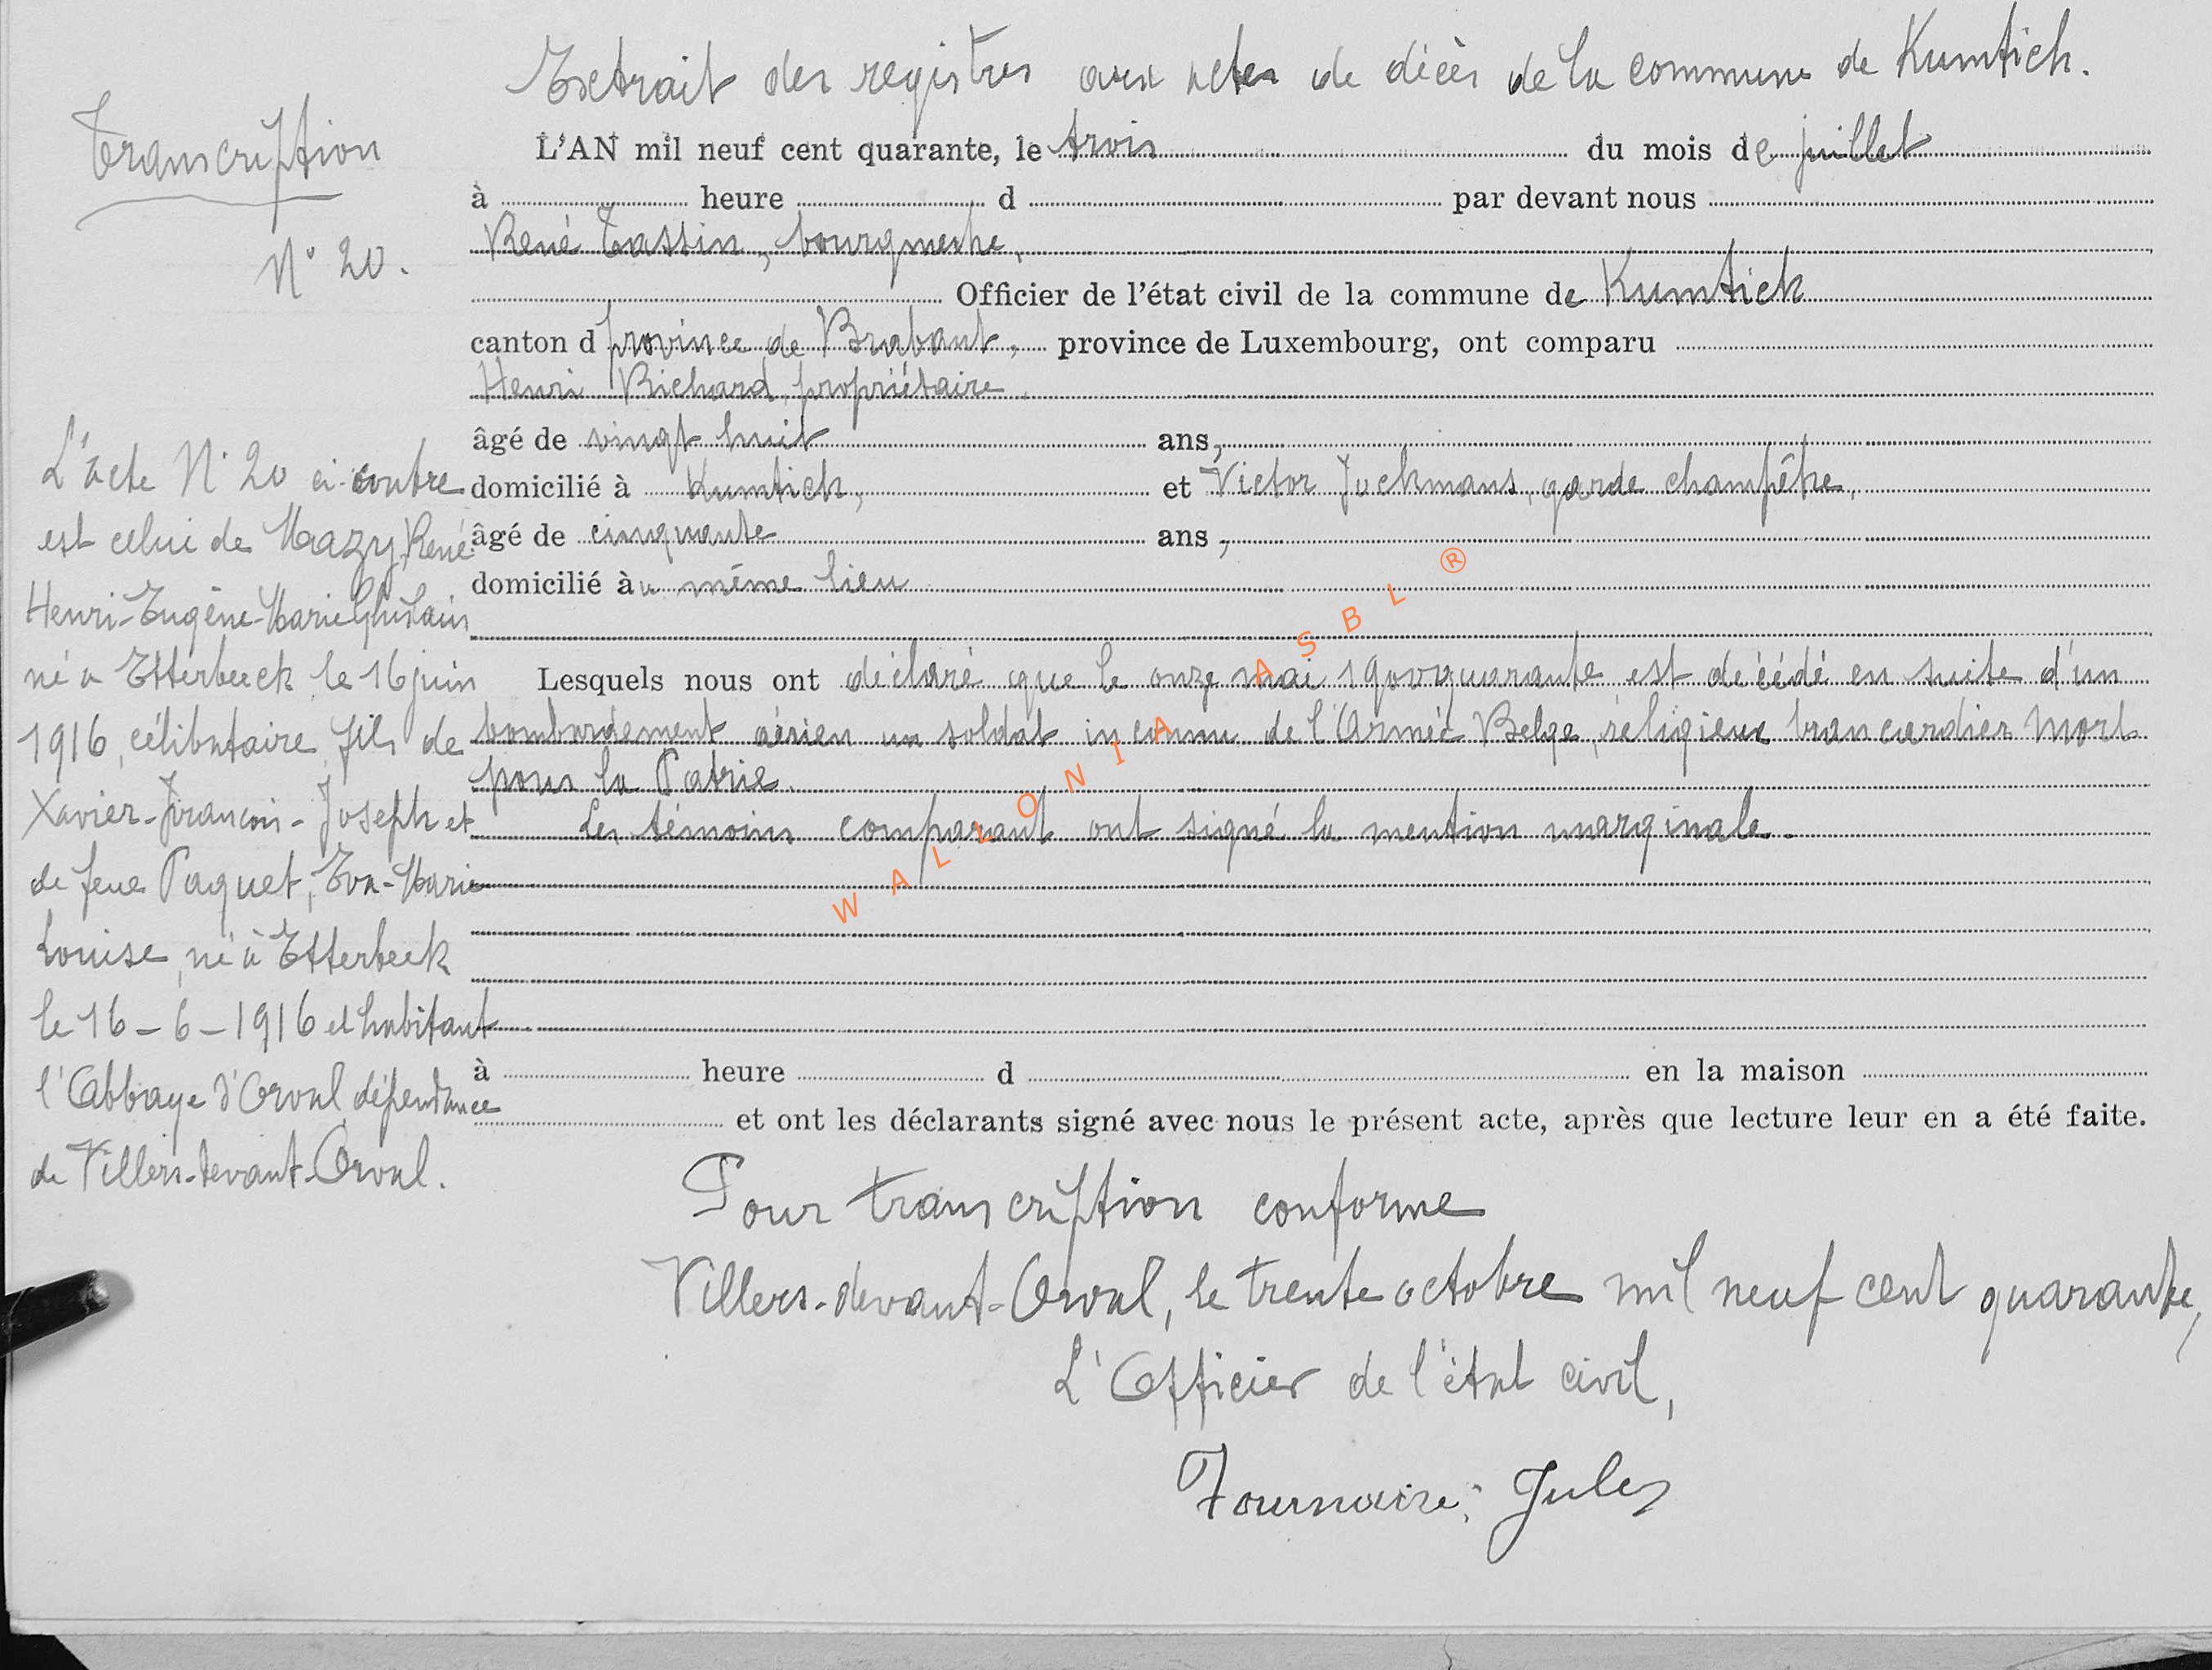 Extrait des registres aux actes de décès de la commune de Kumtich.
Transcription
N° 20.
L'AN mil neuf cent quarante, le trois du mois de juillet
à heure d par devant nous
René Tassin, bourgmestre,
Officier de l'état civil de la commune de Kumtich
canton d province de Brabant, province de Luxembourg, ont comparu
Henri Richard, propriétaire,
âgé de vingt huit ans,
domicilié à Kumtich, et Victor Jochmans, garde champêtre,
âgé de cinquante ans,
domicilié àu même lieu
Lesquels nous ont déclaré que le onze mai quarante est décédé en suite d'un
bombardement aérien un soldat inconnu de l'Armée Belge, religieux brancardier Mort
pour la Patrie.
Les témoins comparant ont signé la mention marginale.
à heure d en la maison
et ont les déclarants signé avec nous le présent acte, après que lecture leur en a été faite.
L'acte N° 20 ci-contre
est celui de Mazy, René
Henri-Eugène-Marie Ghislain
né à Etterbeeck le 16 juin
1916, célibataire, fils de
Xavier-François-Joseph et
de feue Paquet, Eva-Marie
Louise, né à Etterbeek
le 16-6-1916 et habitant
l'Abbaye d'Orval dépendance
de Villers-devant-Orval.
Pour transcription conforme
Villers-devant-Orval, le trente octobre mil neuf cent quarante,
L'Officier de l'état civil,
Fournaire, Jules
WALLONIA ASBL ®